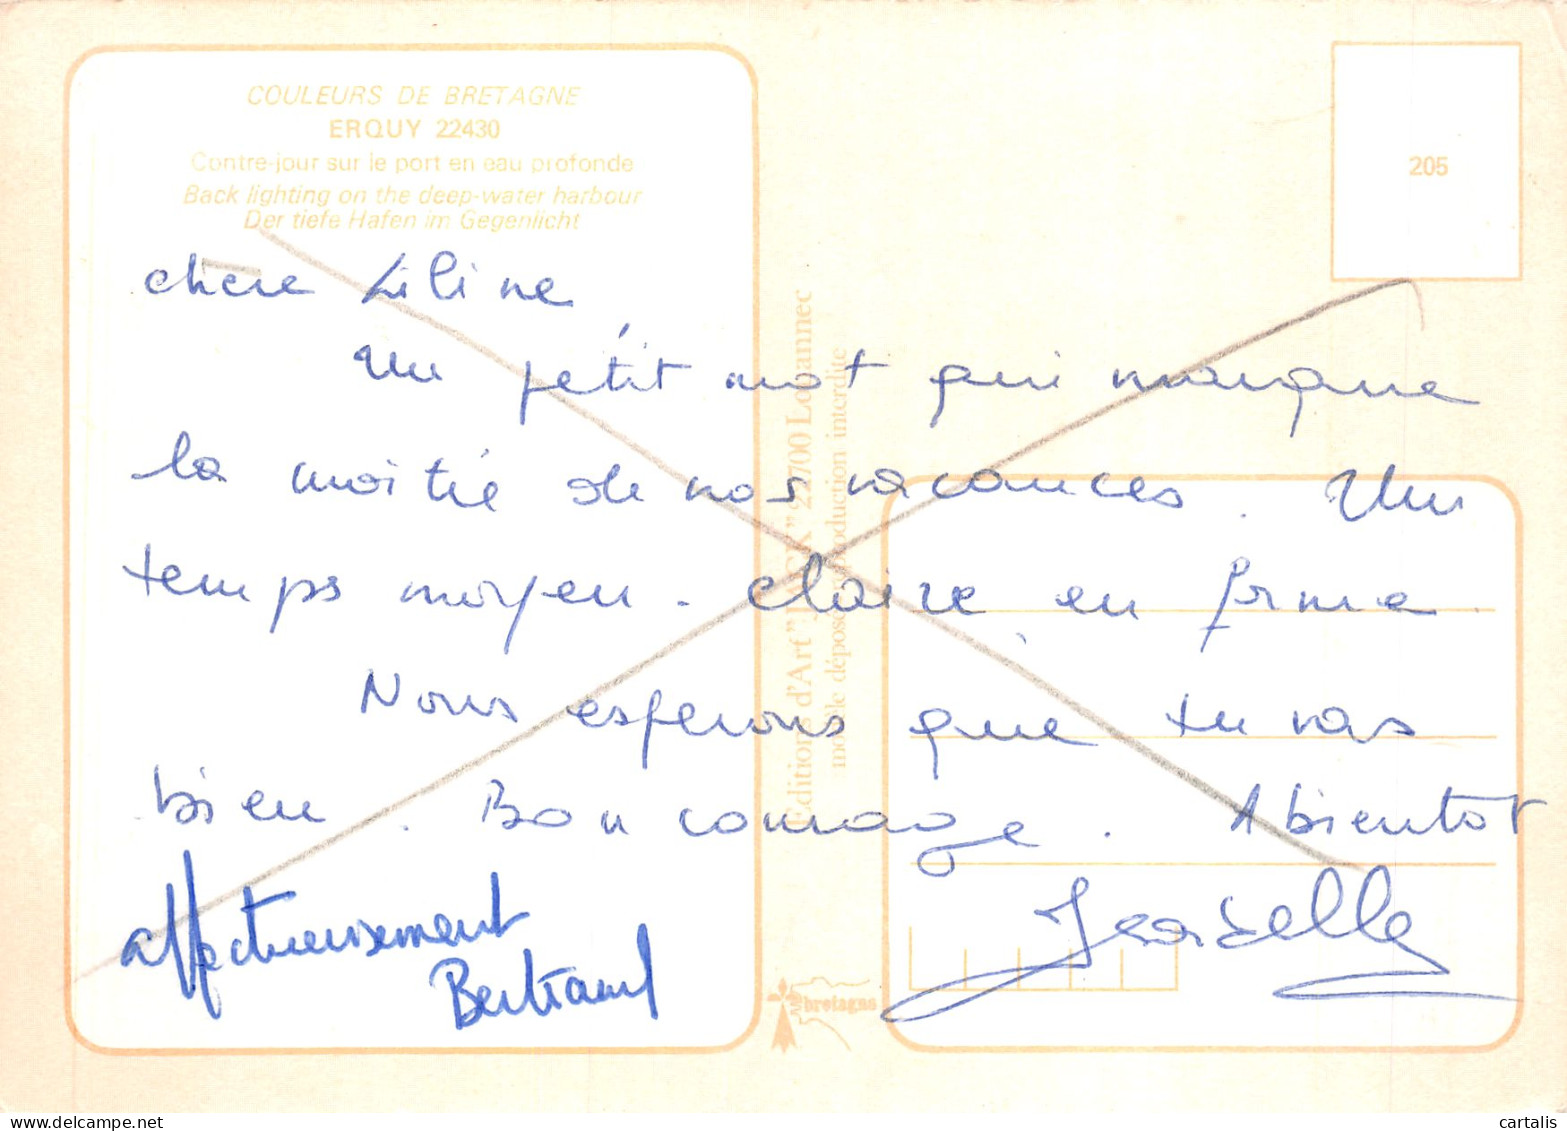 COULEURS DE BRETAGNE
ERQUY 22430
Contre-jour sur le port en eau profonde
Back lighting on the deep-water harbour
Der tiefe Hafen im Gegenlicht
205
chere Liline
Un pétit mot qui marque
la moitié de nos vacances. Un
temps moyen. Claire en forme.
Nous esperons que tu vas
bien. Bon courage. A bientot
affectueusement
Bertrand
Isabelle
Editions d'Art "JACK" 22700 Louannec
modèle déposé reproduction interdite
bretagne
cartalis